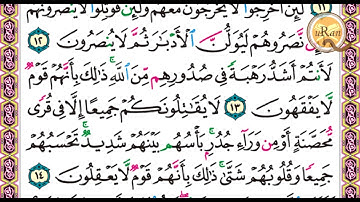 ١١ لَئِنْ أُخْرِجُوا۟ لَا يَخْرُجُونَ مَعَهُمْ وَلَئِن قُوتِلُوا۟ لَا يَنصُرُونَهُمْ
uRan
نَّصَرُوهُمْ لَيُوَلُّنَّ ٱلْأَدْبَـٰرَ ثُمَّ لَا يُنصَرُونَ ١٢
لَأَنتُمْ أَشَدُّ رَهْبَةً فِى صُدُورِهِم مِّنَ ٱللَّهِ ۚ ذَٰلِكَ بِأَنَّهُمْ قَوْمٌ
لَّا يَفْقَهُونَ ١٣ لَا يُقَـٰتِلُونَكُمْ جَمِيعًا إِلَّا فِى قُرًى
مُّحَصَّنَةٍ أَوْ مِن وَرَآءِ جُدُرٍۭ ۚ بَأْسُهُم بَيْنَهُمْ شَدِيدٌ ۚ تَحْسَبُهُمْ
جَمِيعًا وَقُلُوبُهُمْ شَتَّىٰ ۚ ذَٰلِكَ بِأَنَّهُمْ قَوْمٌ لَّا يَعْقِلُونَ ١٤